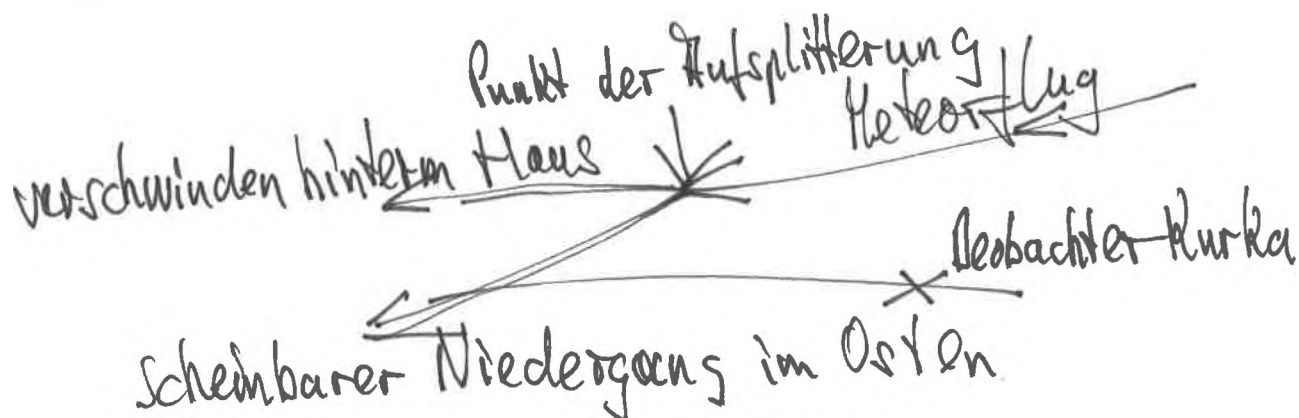 Punkt der Aufsplitterung
Meteorflug
verschwinden hinterm Haus
Beobachter-Kurka
scheinbarer Niedergang im Osten